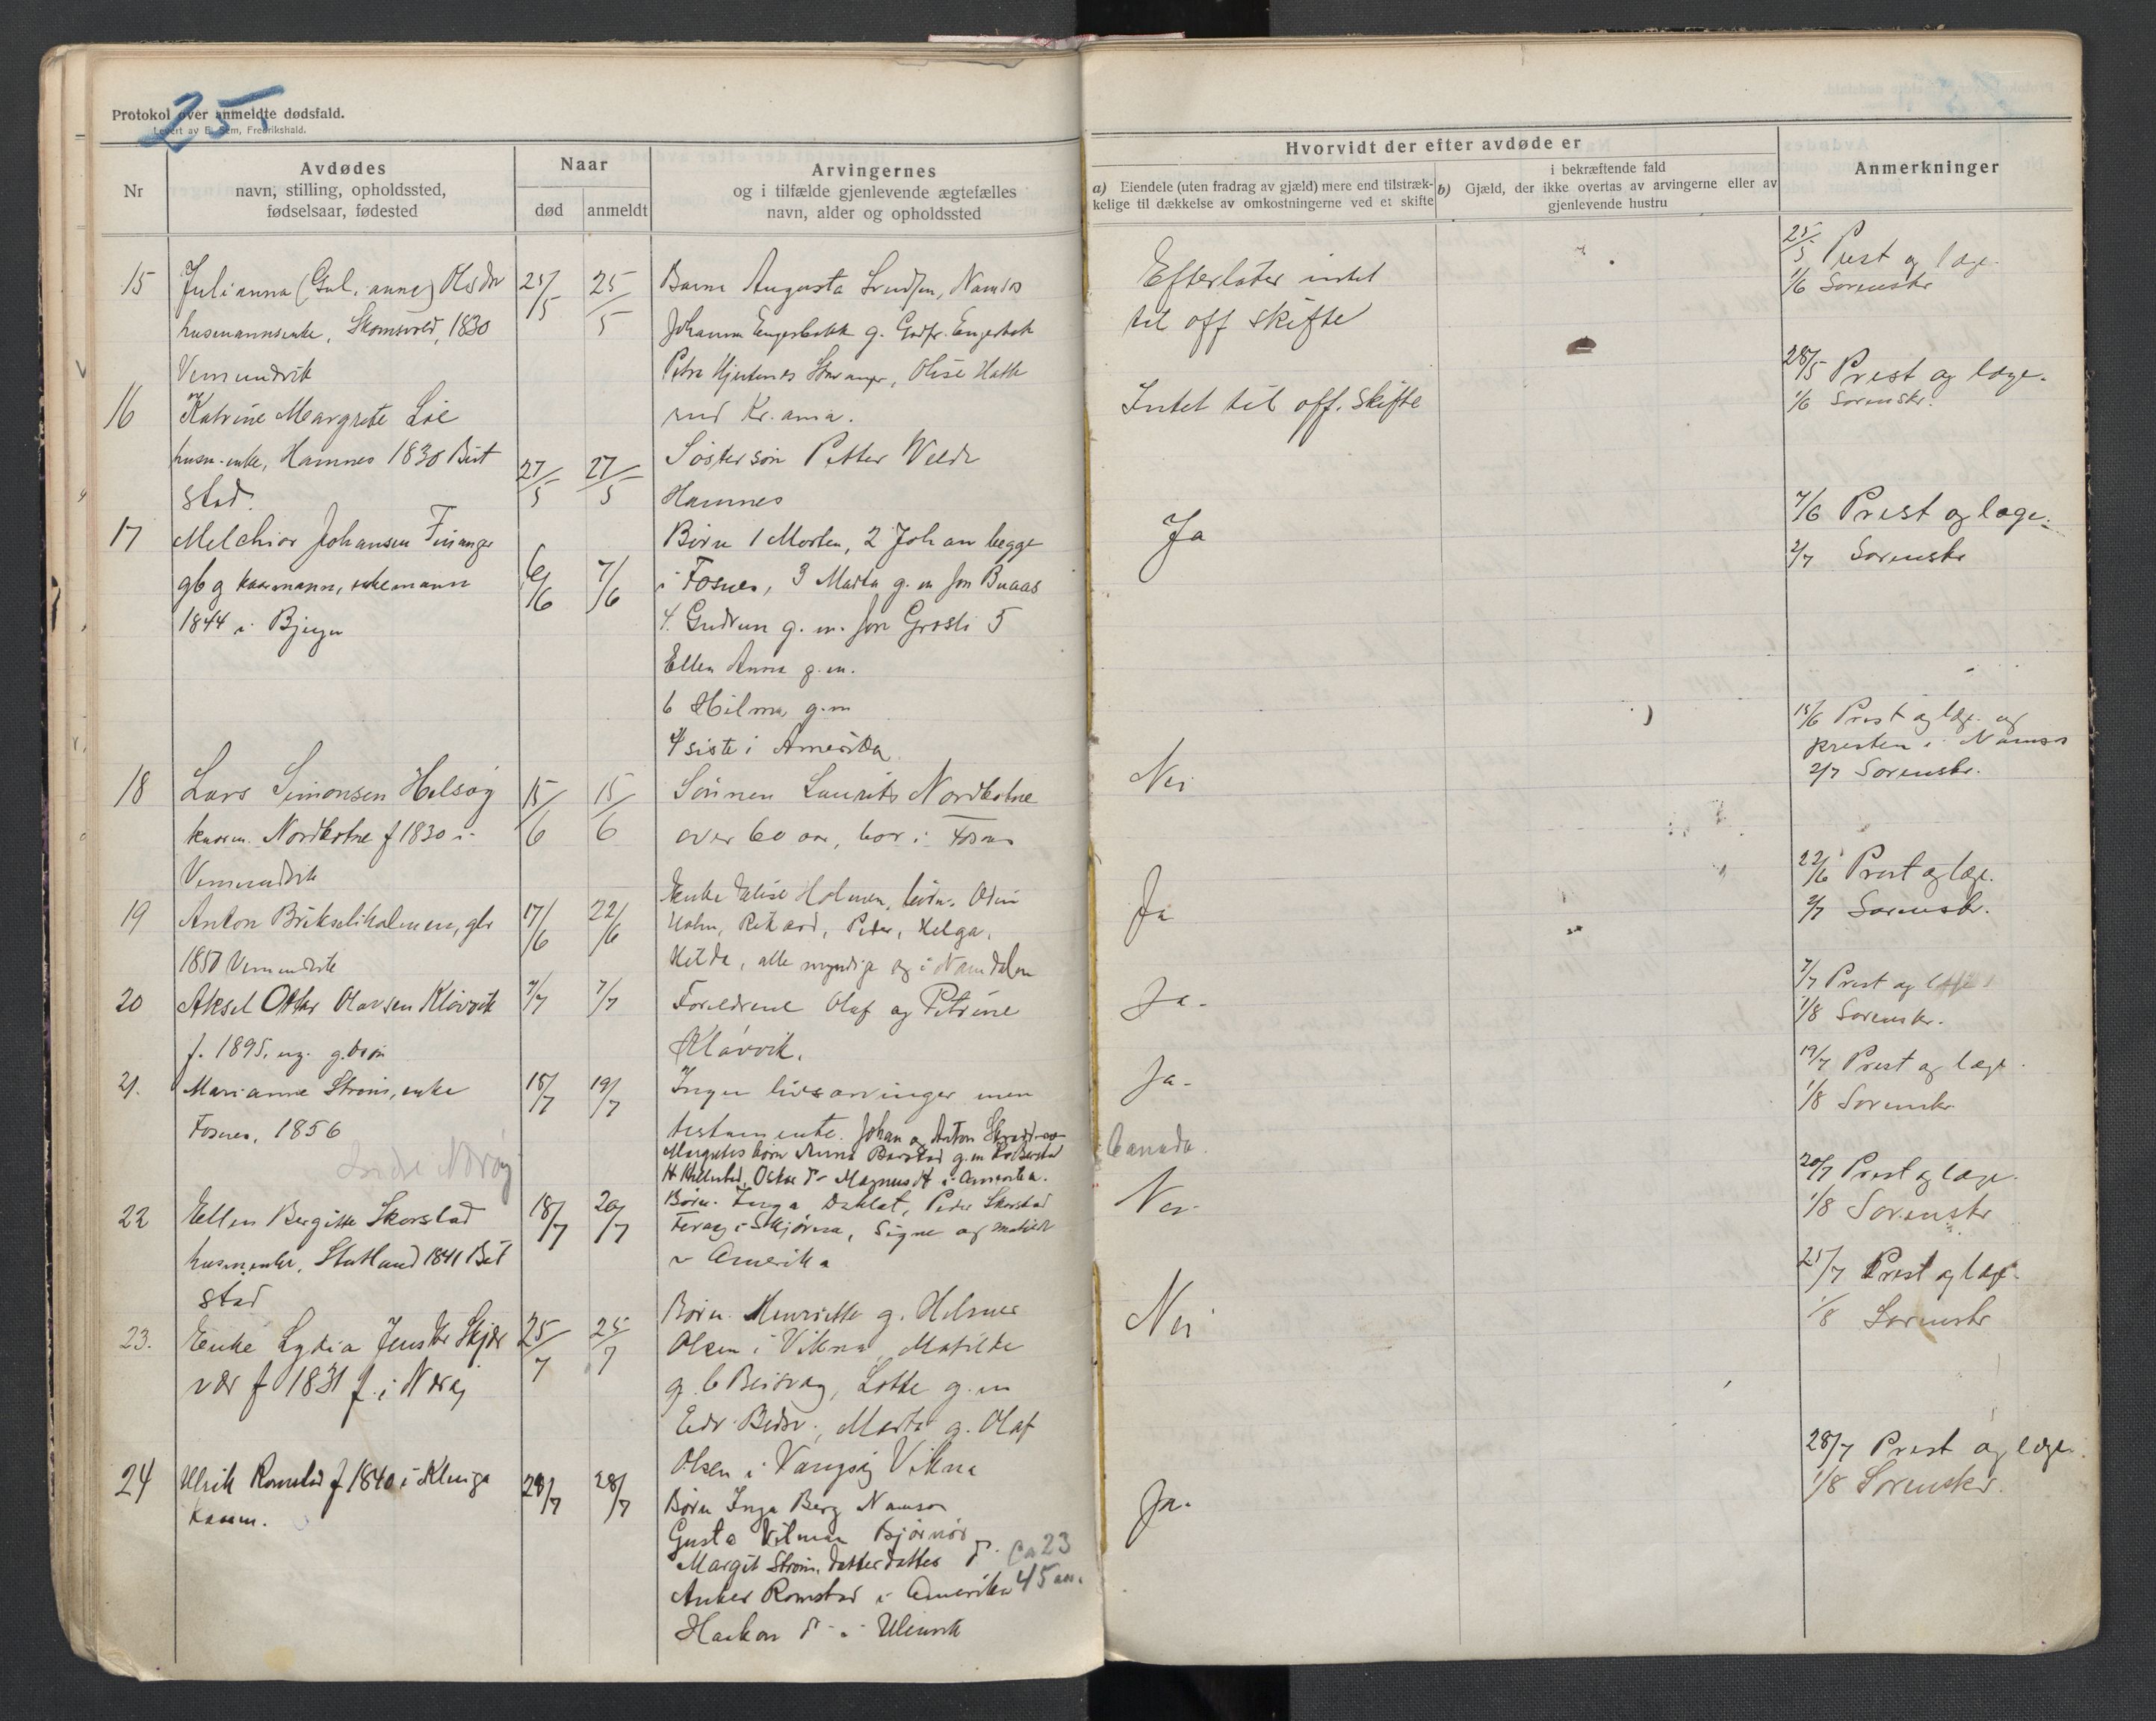 25
Protokol over anmeldte dødsfald.
Levert av E. Sem, Fredrikshald.
Nr
Avdødes
navn, stilling, opholdssted,
fødselsaar, fødested
Naar
død
anmeldt
Arvingernes
og i tilfælde gjenlevende ægtefælles
navn, alder og opholdssted
Hvorvidt der efter avdøde er
a) Eiendele (uten fradrag av gjæld) mere end tilstræk-
kelige til dækkelse av omkostningerne ved et skifte
i bekræftende fald
b) Gjæld, der ikke overtas av arvingerne eller av
gjenlevende hustru
Anmerkninger
15
Julianna (Gul. anne) Olsdtr
husmannsenke, 1830
Vemundvik
25/5
25/5
Barna Augusta Namsos
Johanna Engesbakk g.
Petra Stavanger, Olise
Kr. ania.
Efterlater intet
til off skifte
25/5 Prest og læge.
1/6 Sorenskr
16
Katrine Margrete Lie
husm. enke, Hamnes 1830 Beit
stad.
27/5
27/5
Søstersøn Petter
Hamnes
Intet til off. skifte
28/5 Prest og læge.
1/6 Sorenskr.
17
Melchior Johansen Finanger
gb og kaarmann, enkemann
1844 i
6/6
7/6
Børn 1 Morten, 2 Johan begge
i Fosnes, 3 Marta g. m Jon Buaas
4. Gudrun g. m. Jon Grosli 5
Ellen Anna g. m.
6 Hilma, g. m
4 siste i Amerika
Ja
7/6 Prest og læge.
2/7 Sorenskr
18
Lars Simonsen Helsøg
kaarm. Nordkotne f 1830 i
Vemundvik
15/6
15/6
Sønnen Laurits Nordkotne
over 60 aar, bor i Fosnes
Nei
15/6 Prest og læge og
presten i Namsos
2/7 Sorenskr.
19
Anton Brikseliholmen, gbr
1850 Vemundvik
17/6
22/6
Enke Elise Holmen, børn. Odin
Holm, Rikard, Peder, Helga,
Hilda, alle myndige og i Namdalen
Ja
22/6 Prest og læge.
2/7 Sorenskr.
20
Aksel Olavsen Kløvvik
f. 1895. ug.
7/7
7/7
Foreldrene Olaf og Petrine
Kløvvik.
Ja.
7/7 Prest og læge
1/8 Sorenskr.
21.
Marianne Strøm, enke
Fosnes, 1856
Indre Nærøy
18/7
19/7
Ingen livsarvinger men
testamente. Johan og Anton
Margretes børn Anna g. m
Oskar do Magnus dt i Amerika.
Canada.
Ja.
19/7 Prest og læge.
1/8 Sorenskr
22
Ellen Bergitte Skorstad
husm. enke, Statland 1841 Beit
stad
18/7
20/7
Børn. Inga Peder Skorstad
Signe og
i Amerika
Nei
20/7 Prest og læge.
1/8 Sorenskr
23.
Enke Lydia Jensdtr Skjær
vær f 1831 f. i Nærøy
25/7
25/7
Børn. Henriette g. Hilmer
Olsen i Vikna, Matilde
g. Lotte g. m
Edv. Marta g. Olaf
Olsen i Vikna
Nei
25/7 Prest og læge.
1/8 Sorenskr
24
Ulrik Romstad f 1840 i Klinga
kaarm.
28/7
28/7
Børn Inga Berg Namsos
Gusta Bjørnør
Margit Strøm. datterdatter do. ca 23
Anker Romstad i Amerika 45 aar.
Haakon do i
Ja.
28/7 Prest og læge.
1/8 Sorenskr.